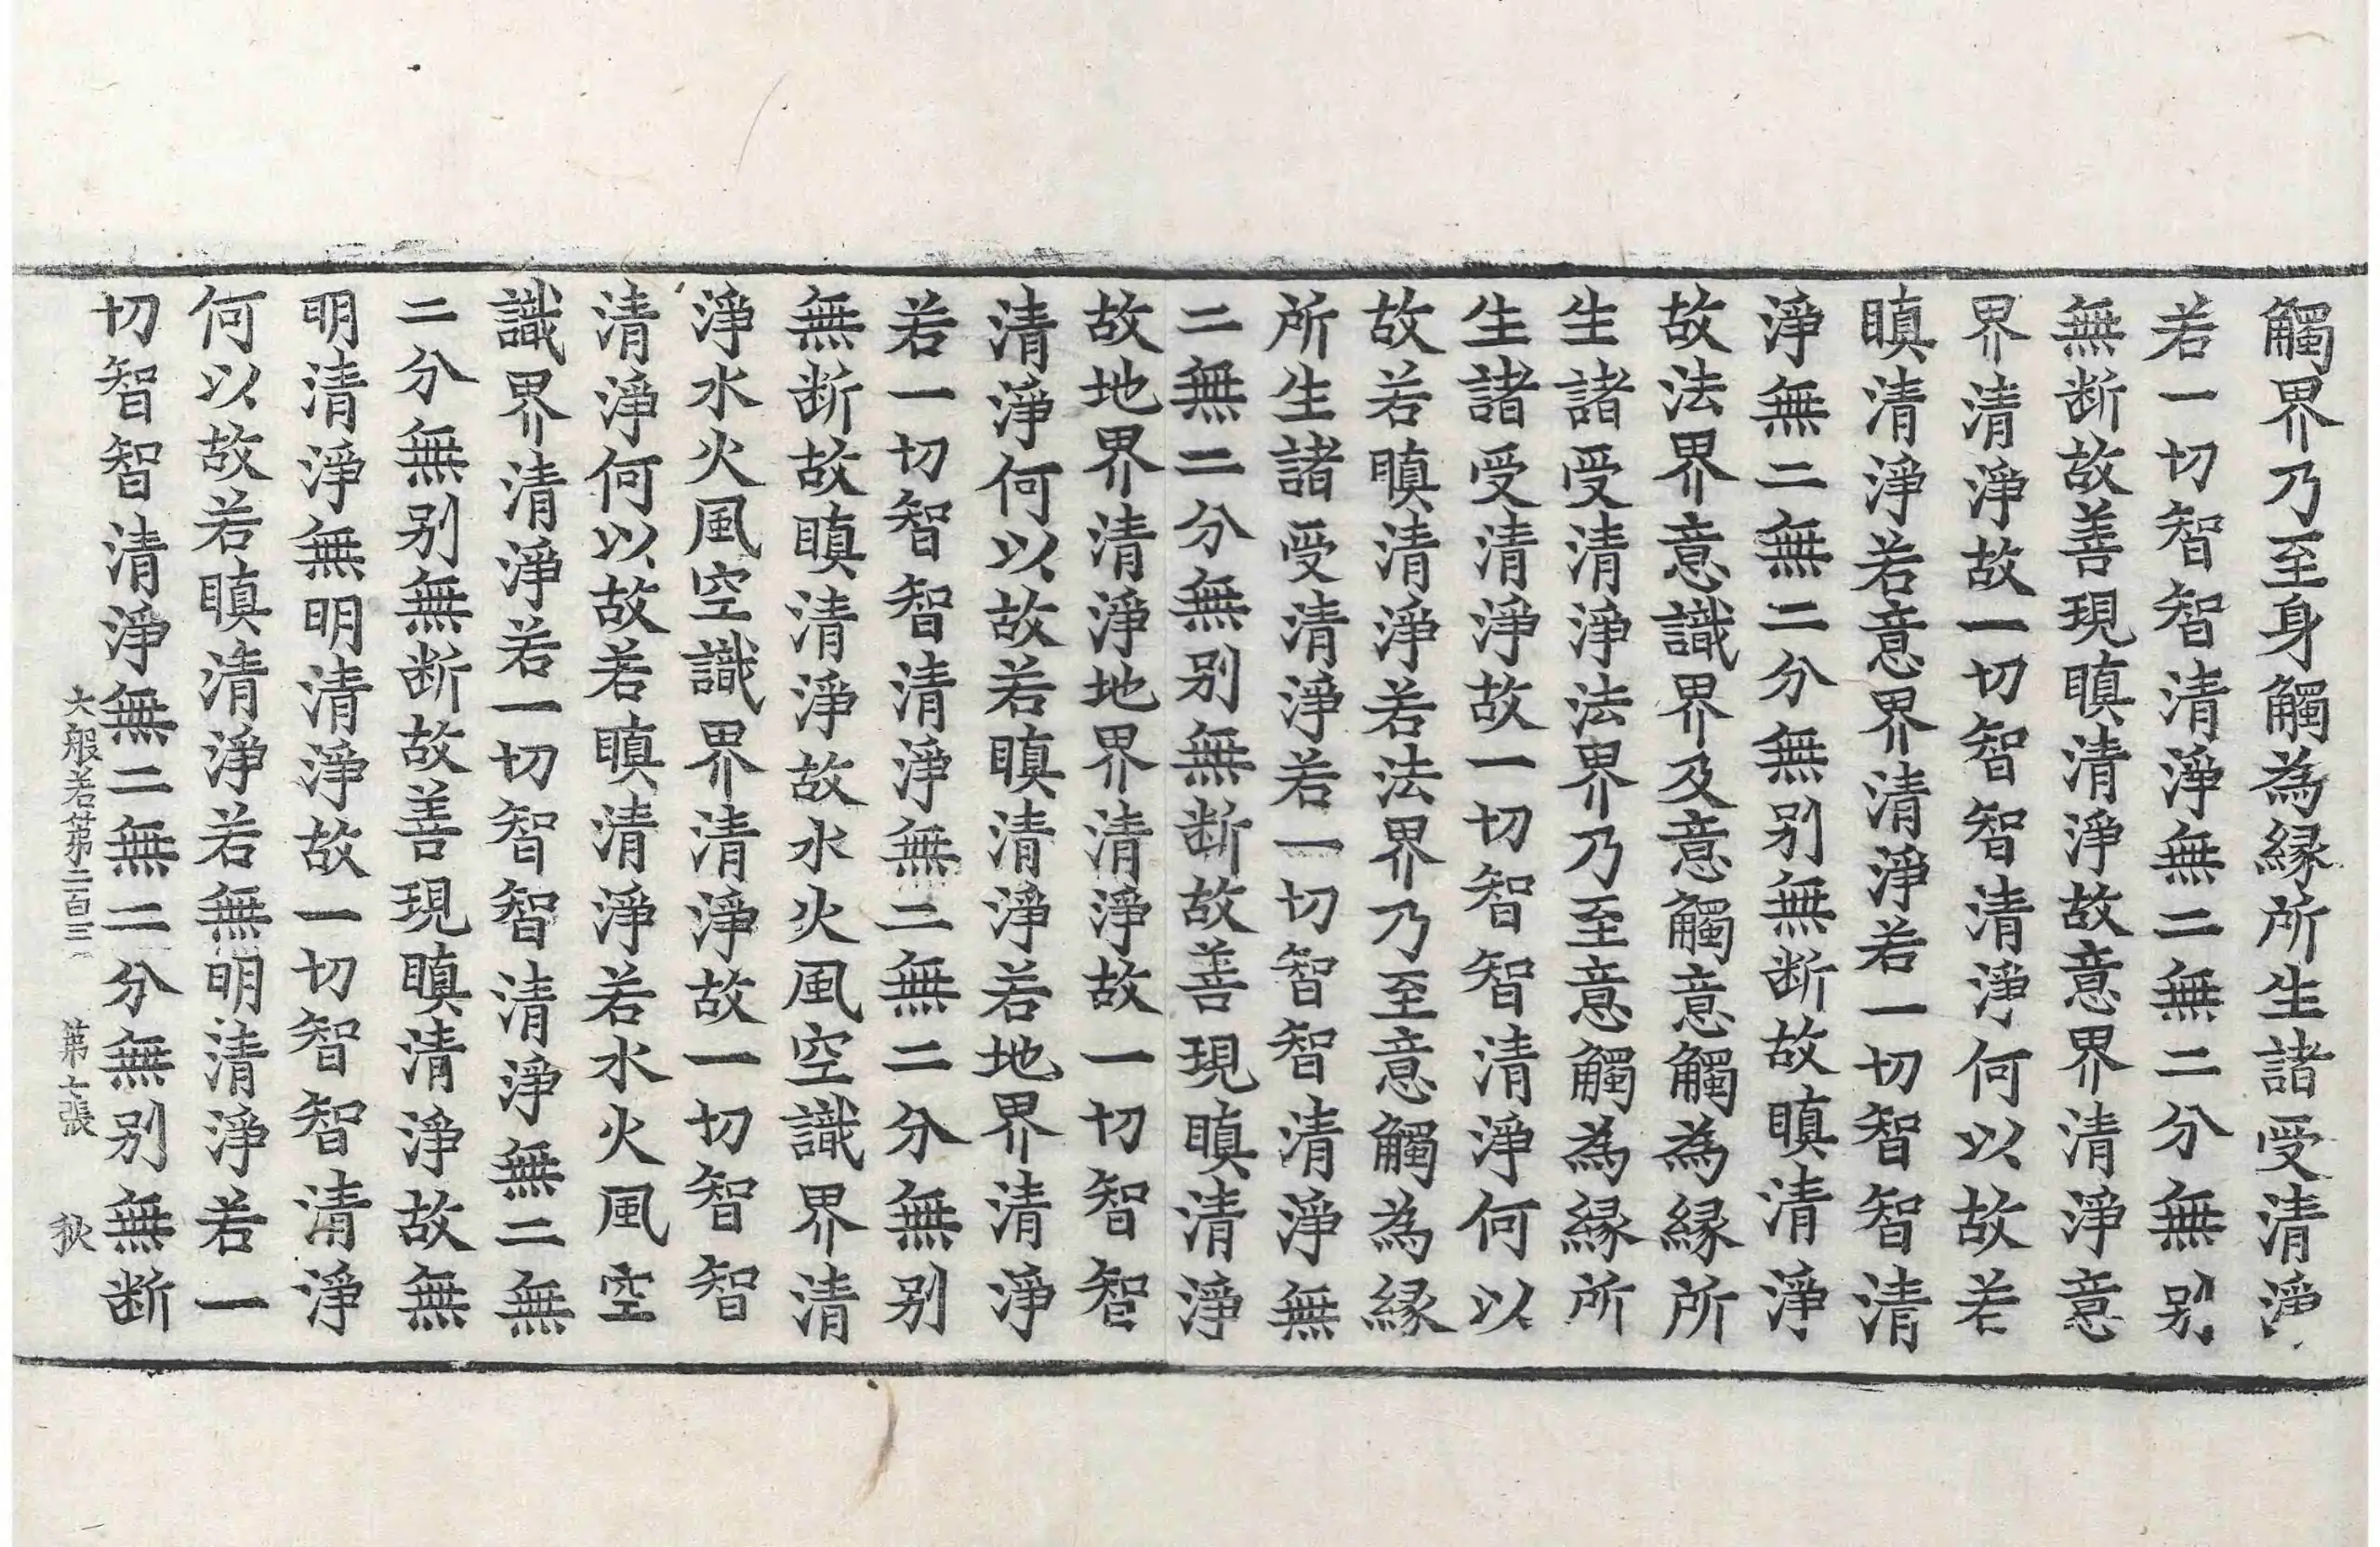 觸界乃至身觸為縁所生諸受清淨
若一切智智清淨無二無二分無别
無断故善現瞋清淨故意界清淨意
界清淨故一切智智清淨何以故若
瞋清淨若意界清淨若一切智智清
淨無二無二分無别無断故瞋清淨
故法界意識界及意觸意觸為縁所
生諸受清淨法界乃至意觸為縁所
生諸受清淨故一切智智清淨何以
故若瞋清淨若法界乃至意觸為縁
所生諸受清淨若一切智智清淨無
二無二分無别無断故善現瞋清淨
故地界清淨地界清淨故一切智智
清淨何以故若瞋清淨若地界清淨
若一切智智清淨無二無二分無别
無断故瞋清淨故水火風空識界清
淨水火風空識界清淨故一切智智
清淨何以故若瞋清淨若水火風空
識界清淨若一切智智清淨無二無
二分無别無断故善現瞋清淨故無
明清淨無明清淨故一切智智清淨
何以故若瞋清淨若無明清淨若一
切智智清淨無二無二分無别無断
大般若第二百三 第七張 狄